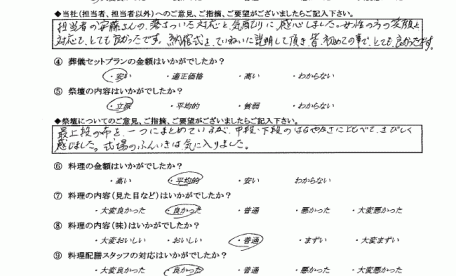 ◆当社(担当者、担当者以外)へのご意見、ご指摘、ご要望がございましたらご記入下さい。
担当者の安藤さんの、落ちついた対応と気配りに感心しました。女性の方の笑顔と
対応も、とても良かったです。納棺式も、ていねいに説明して頂き皆初めての事で、とても良かったです。
④ 葬儀セットプランの金額はいかがでしたか?
・安い ・適正価格 ・高い ・わからない
⑤ 祭壇の内容はいかがでしたか?
・立派 ・平均的 ・貧弱 ・わからない
◆祭壇についてのご意見、ご指摘、ご要望がございましたらご記入下さい。
最上段の布を、一つにまとめているが、中段・下段のはなやかさに比べて、さびしく
感じました。式場のふんいきは気に入りました。
⑥ 料理の金額はいかがでしたか?
・高い ・平均的 ・安い わからない
⑦ 料理の内容(見た目など)はいかがでしたか?
・大変良かった ・良かった ・普通 ・悪かった ・大変悪かった
⑧ 料理の内容(味)はいかがでしたか?
・大変おいしい ・おいしい ・普通 ・まずい ・大変まずい
⑨ 料理配膳スタッフの対応はいかがでしたか?
・大変良かった ・良かった ・普通 ・悪かった ・大変悪かった